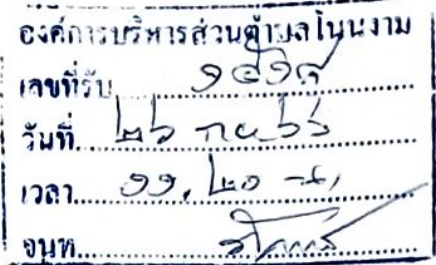 องค์การบริหารส่วนตำบลโนนงาม
เลขที่รับ
วันที่ ๒๖ กย. ๖๖
เวลา ๑๑.๒๐ น.
จนท.